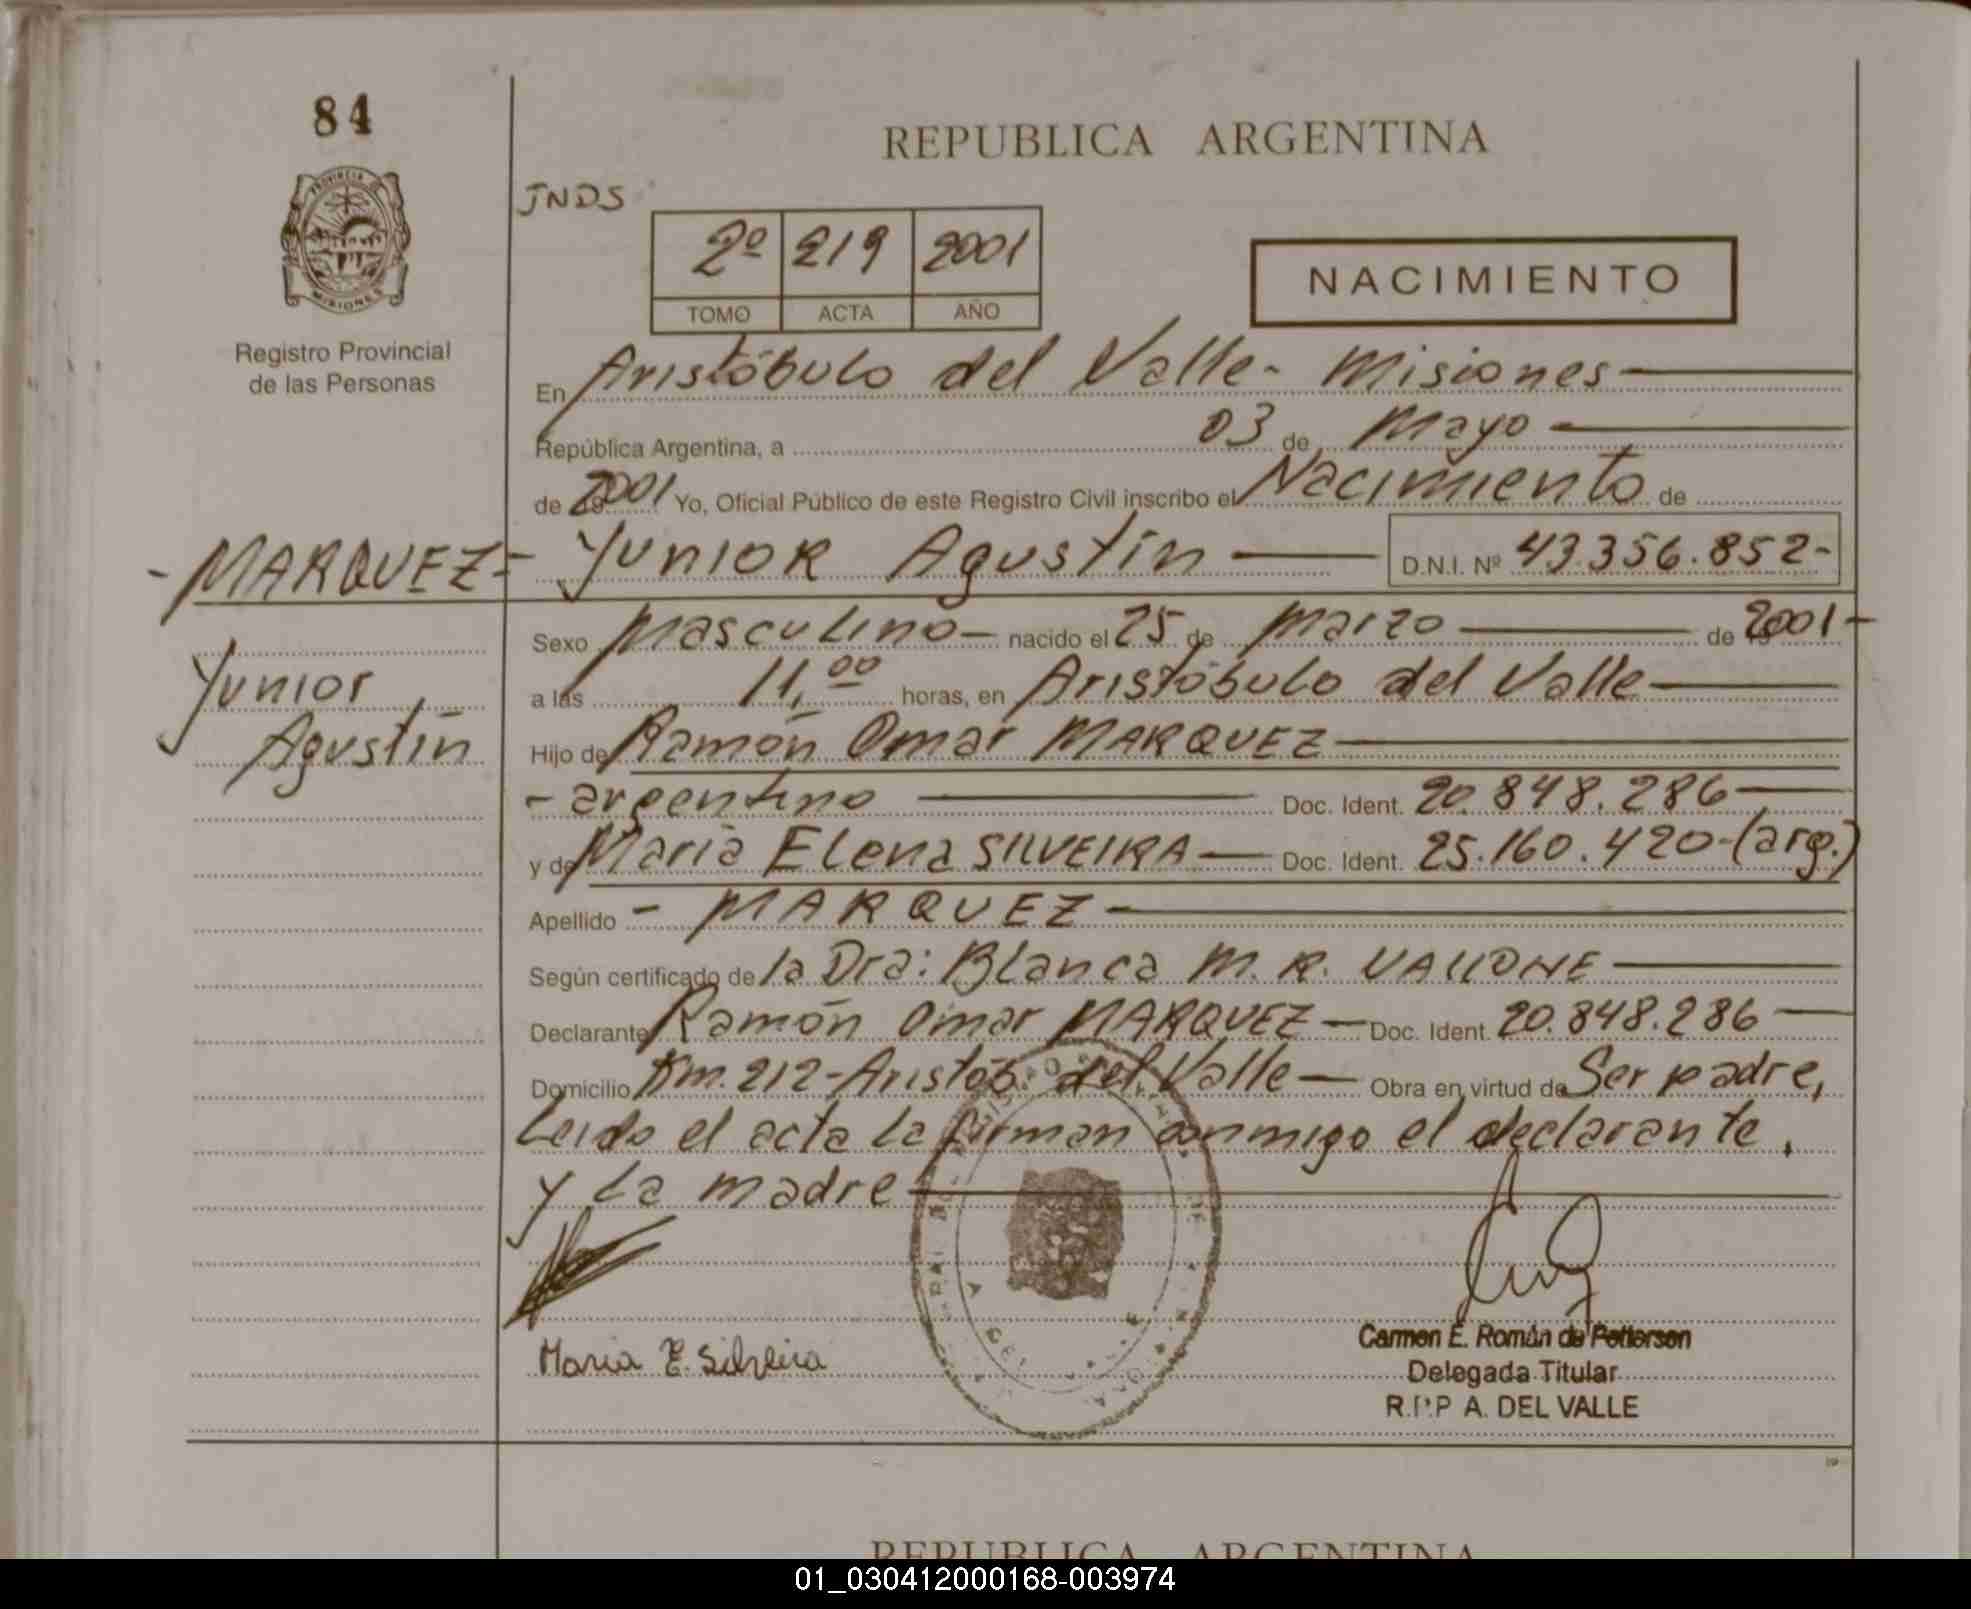 84
REPUBLICA ARGENTINA
PROVINCIA DE
MISIONES
Registro Provincial
de las Personas
JNDS
2º 219 2001
TOMO ACTA AÑO
NACIMIENTO
En Aristóbulo del Valle - Misiones
República Argentina, a 03 de Mayo
de 2001 Yo, Oficial Público de este Registro Civil inscribo el Nacimiento de
- MARQUEZ - YUNIOR Agustín D.N.I. Nº 43.356.852-
Yunior
Agustín
Sexo Masculino nacido el 25 de Marzo de 2001
a las 11,00 horas, en Aristóbulo del Valle
Hijo de Ramón Omar MARQUEZ
- argentino Doc. Ident. 20.848.286
y de María Elena SILVEIRA Doc. Ident. 25.160.420-(arg.)
Apellido - MARQUEZ -
Según certificado de la Dra: Blanca M. R. VALLONE
Declarante Ramón Omar MARQUEZ Doc. Ident. 20.848.286
Domicilio Km. 212 - Aristób. del Valle Obra en virtud de Ser padre,
Leido el acta la firman conmigo el declarante,
y la madre
Maria E. Silveira
Carmen E. Román de Petterson
Delegada Titular
R.P.P A. DEL VALLE
REPUBLICA ARGENTINA
01_030412000168-003974